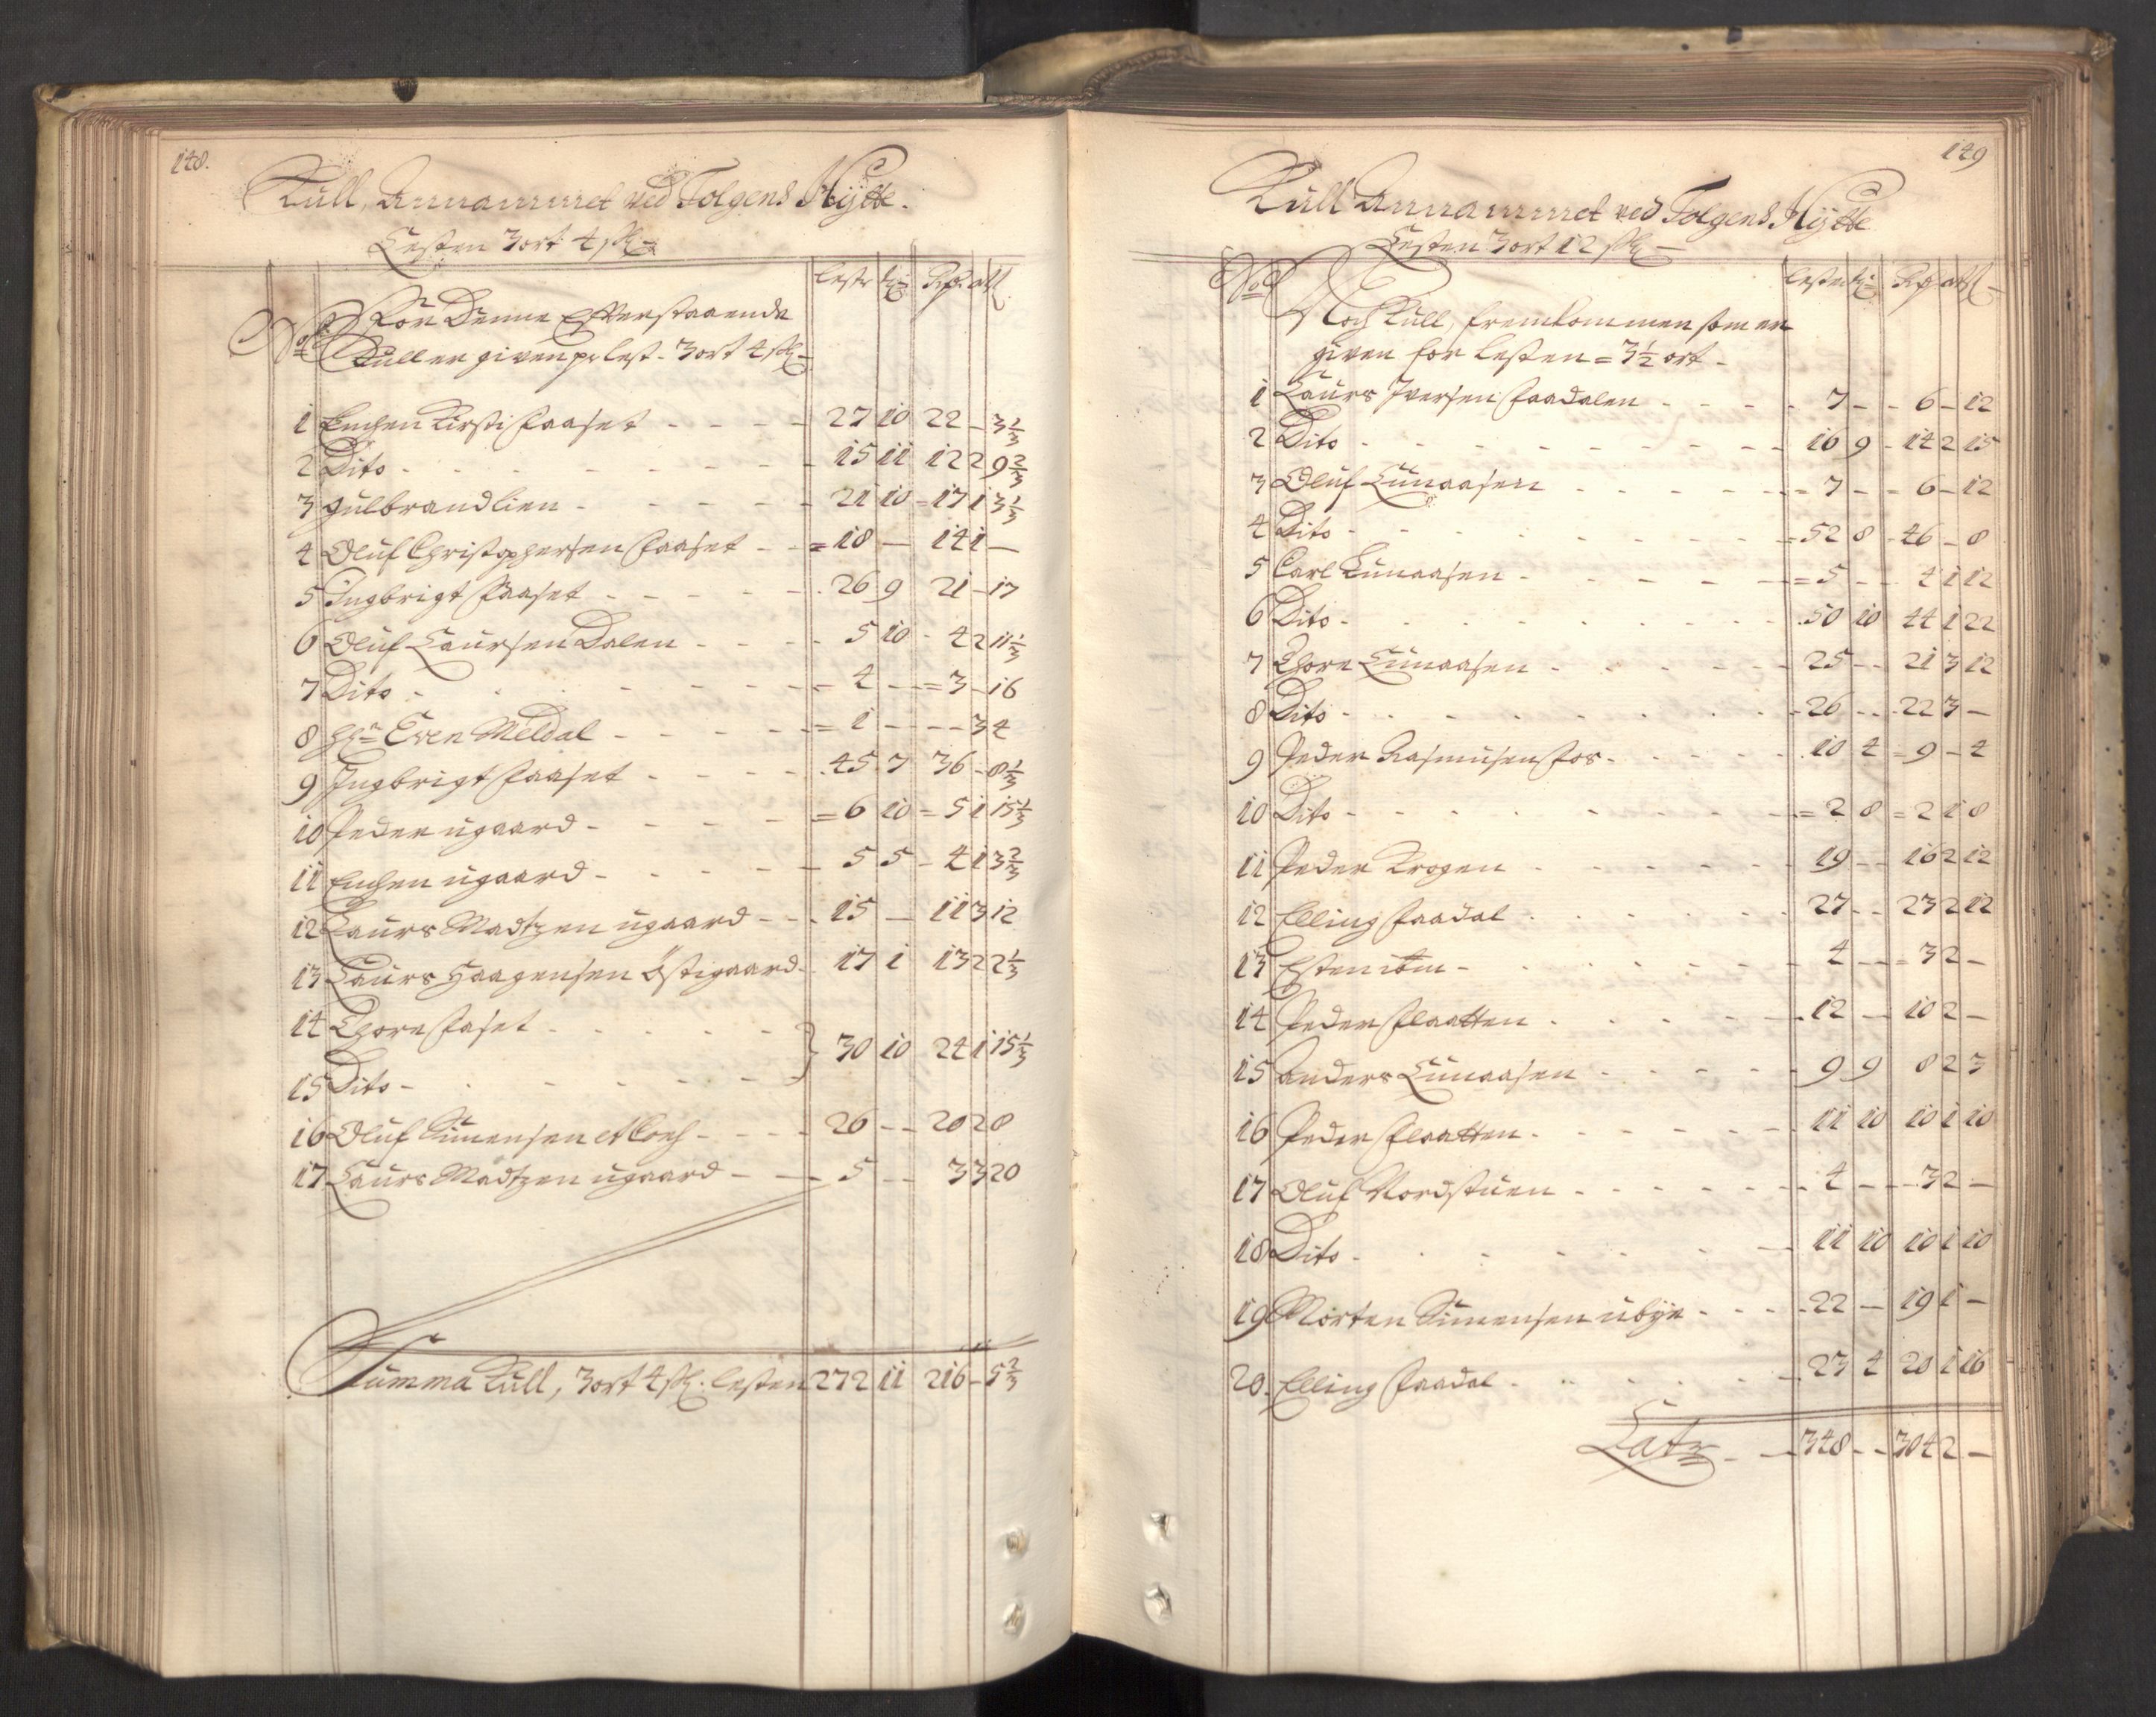 148.
Kull, Annammet ved Tolgens Hÿtte.
Lesten 3 ort 4 sk
lester tr Rdr ort sk
No For Denne Efterstaaende
Kull er given pr lest - 3 ort 4 sk -
1 Enchen Kirsti Faaset - - - - 27 10 22 - 3 1/3
2 Dito - - - - 15 11 12 2 9 2/3
3 Gulbrand Lien - - - - 21 10 17 1 3 1/3
4 Oluf Christophersen Faaset - - 18 - 14 1 -
5 Ingbrigt Faaset - - - - 26 9 21 - 17
6 Oluf Laursen Dalen - - - 5 10 - 4 2 11 1/3
7 Dito - - - - 4 - 3 - 16
8 Hr Even Meldal - - - - 1 - - 3 4
9 Ingbrigt Faaset - - - - 45 7 36 - 8 1/3
10 Peder Ugaard - - - - 6 10 5 1 15 1/3
11 Enchen Ugaard - - - - 5 5 - 4 1 3 2/3
12 Laurs Madtzen Ugaard - - 15 - 11 3 12
13 Laurs Haagensen Östigaard - 17 1 13 2 2 1/3
14 Thore Faset - - - -
} 30 10 24 1 15 1/3
15 Dito - - - -
16 Oluf Simensen - - - 26 - - 20 2 8
17 Laurs Madtzen Ugaard - - 5 - - 3 3 20
Summa Kull, 3 ort 4 sk. lesten 272 11 216 - 5 2/3
149
Kull Annammet ved Tolgens Hÿtte
Lesten 3 ort 12 sk -
No lester tr Rdr ort sk -
Noch Kull, fremkommen som er
given for lesten = 3 1/2 ort -
1 Laurs Iversen Faadalen - - - 7 - - 6 - 12
2 Dito - - - - 16 9 - 14 2 15
3 Oluf Kunaasen - - - - 7 - - 6 - 12
4 Dito - - - - 52 8 - 46 - 8
5 Carl Kunaasen - - - - 5 - - 4 1 12
6 Dito - - - - 50 10 44 1 22
7 Thore Kunaasen - - - - 25 - - 21 3 12
8 Dito - - - - 26 - - 22 3 -
9 Peder Rasmusen Fos - - - - 10 4 - 9 - 4
10 Dito - - - - 2 8 = 2 1 8
11 Peder Krogen - - - - 19 - - 16 2 12
12 Elling Faadal - - - - 27 - - 23 2 12
13 Esten ibm - - - - 4 - - 3 2 -
14 Peder Flaatten - - - - 12 - 10 2 -
15 Anders Kunaasen - - - - 9 9 8 2 3
16 Peder Flaatten - - - - 11 10 10 1 10
17 Oluf Nordstuen - - - - 4 - - 3 2 -
18 Dito - - - - 11 10 10 1 10
19 Morten Simensen Ubÿe - - - 22 - 19 1 -
20. Elling Faadal - - - - 23 4 20 1 16
Latr - - 348 - - 304 2 -